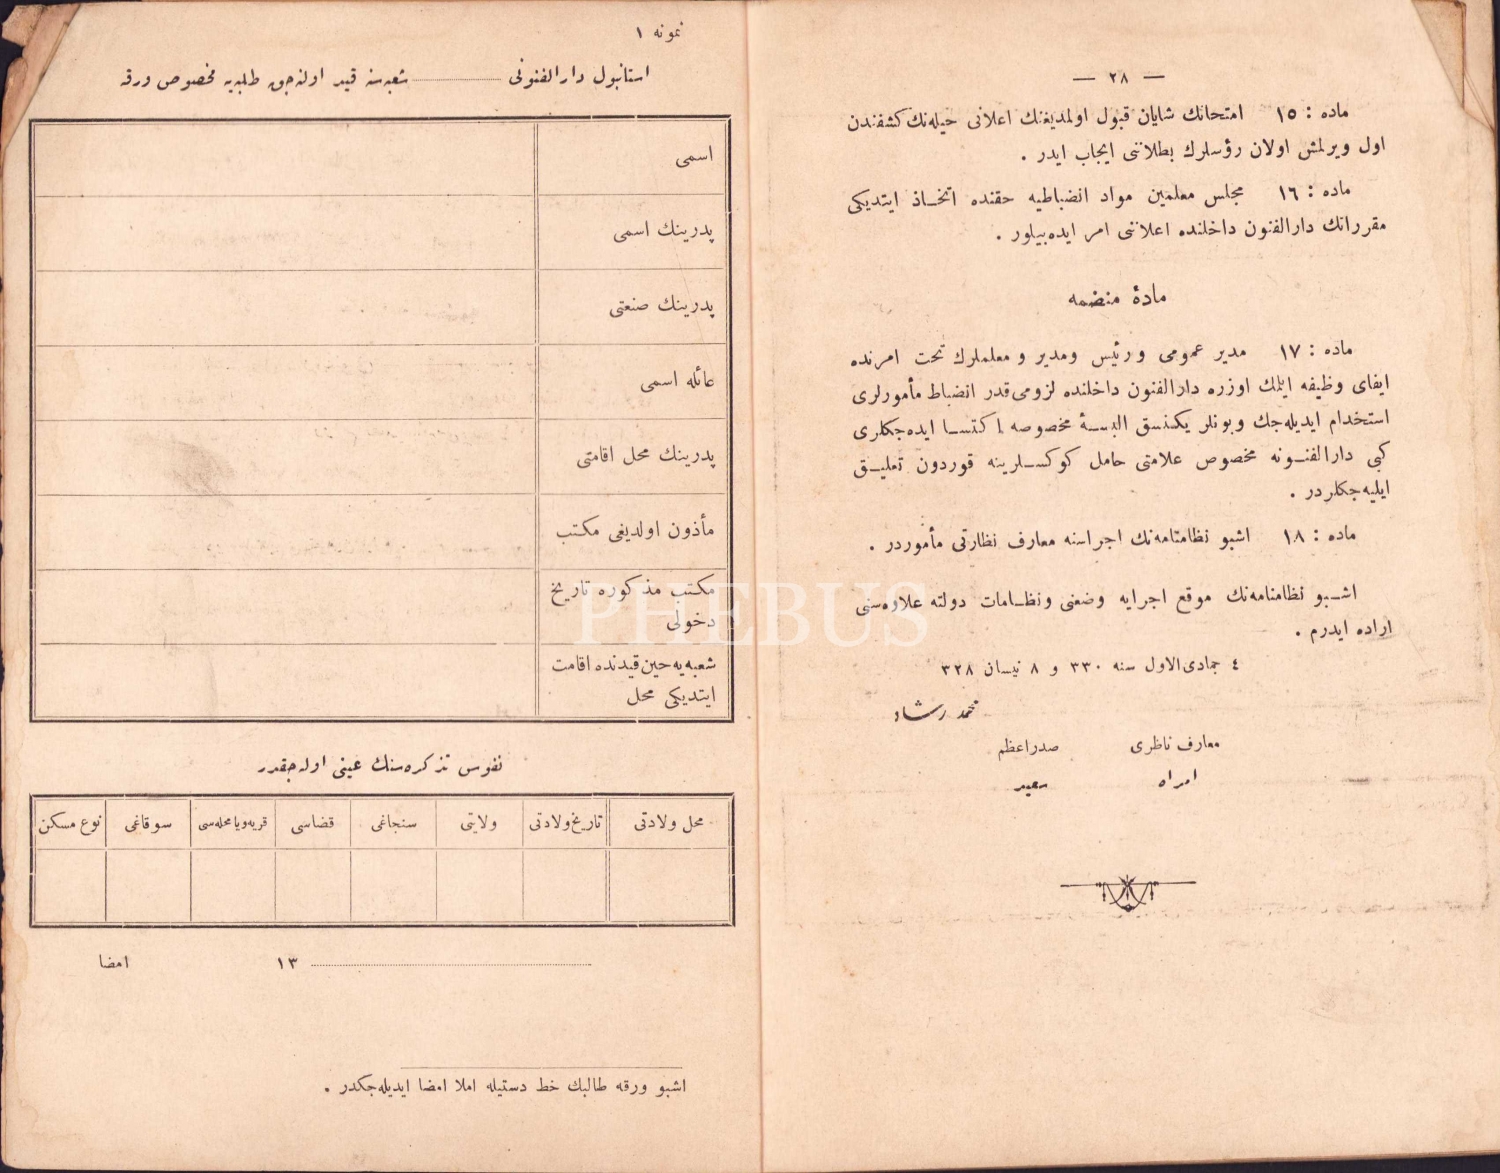 — ٢٨ —
ماده : ١٥ امتحانك شایان قبول اولمدیغنك اعلانی حیله‌نك كشفندن
اول ویرلمش اولان رؤسلرك بطلانی ایجاب ایدر .
ماده : ١٦ مجلس معلمین مواد انضباطیه حقنده اتخاذ ایتدیكی
مقرراتك دارالفنون داخلنده اعلاننی امر ایده‌بیلور .
مادۀ منضمه
ماده : ١٧ مدیر عمومی و رئیس ومدیر و معلملرك تحت امرنده
ایفای وظیفه ایلمك اوزره دارالفنون داخلنده لزومی قدر انضباط مأمورلری
استخدام ایدیله‌جك وبونلر یكنسق البسۀ مخصوصه اكتسا ایده‌جكلری
كبی دارالفنونه مخصوص علامتی حامل كوكسلرینه قوردون تعلیق
ایلیه‌جكلردر .
ماده : ١٨ اشبو نظامنامه‌نك اجراسنه معارف نظارتی مأموردر .
اشبو نظامنامه‌نك موقع اجرایه وضعنی ونظامات دولته علاوه‌سنی
اراده ایدرم .
٤ جمادی‌الاول سنه ٣٣٠ و ٨ نیسان ٣٢٨
محمد رشاد
معارف ناظری صدراعظم
امراه سعید
نمونه ١
استانبول دارالفنونی ............ شعبه‌سنه قید اوله‌جق طلبه‌یه مخصوص ورقه
اسمی
پدرینك اسمی
پدرینك صنعتی
عائله اسمی
پدرینك محل اقامتی
مأذون اولدیغی مكتب
مكتب مذكوره تاریخ
دخولی
شعبه‌یه حین قیدنده اقامت
ایتدیكی محل
نفوس تذكره‌سنك عینی اوله‌جقدر
محل ولادتی تاریخ ولادتی ولایتی سنجاغی قضاسی قریه ویا محله‌سی سوقاغی نوع مسكن
............ ١٣ امضا
اشبو ورقه طالبك خط دستیله املا امضا ایدیله‌جكدر .
PHEBUS